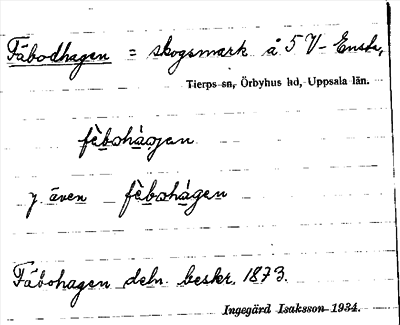 Fäbodhagen = skogsmark å 5 V-Ensta,
Tierps sn, Örbyhus hd, Uppsala län.
fèbohàgen
y. även fèbohágen
Fäbohagen deln. beskr. 1873.
Ingegärd Isaksson 1934.